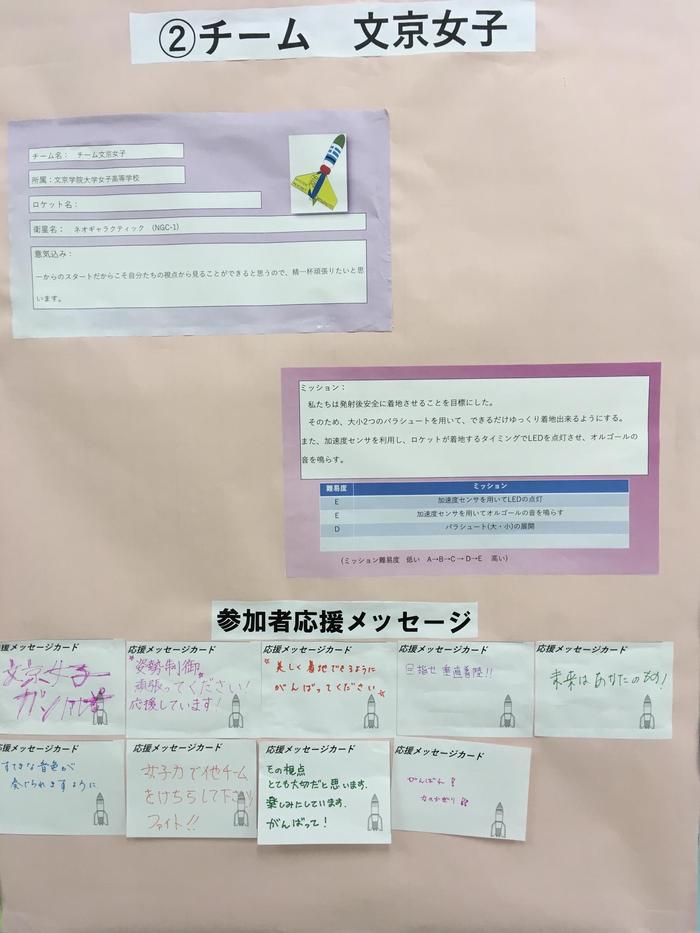 ②チーム　文京女子
チーム名：　チーム文京女子
所属：文京学院大学女子高等学校
ロケット名：
衛星名：　ネオギャラクティック　(NGC-1)
意気込み：
一からのスタートだからこそ自分たちの視点から見ることができると思うので、精一杯頑張りたいと思
います。
ミッション：
私たちは発射後安全に着地させることを目標にした。
そのため、大小2つのパラシュートを用いて、できるだけゆっくり着地出来るようにする。
また、加速度センサを利用し、ロケットが着地するタイミングでLEDを点灯させ、オルゴールの
音を鳴らす。
難易度　ミッション
E　加速度センサを用いてLEDの点灯
E　加速度センサを用いてオルゴールの音を鳴らす
D　パラシュート(大・小)の展開
(ミッション難易度　低い　A→B→C→D→E　高い)
参加者応援メッセージ
援メッセージカード
文京女子
ガンバレ
応援メッセージカード
姿勢制御
頑張ってください!
応援しています!
応援メッセージカード
美しく着地できるように
がんばってください
応援メッセージカード
目指せ 垂直着陸!!
応援メッセージカード
未来はあなたのもの!
応援メッセージカード
すてきな音色が
奏でられますように
応援メッセージカード
女子力で他チーム
をけちらして下さい
ファイト!!
応援メッセージカード
その視点
とても大切だと思います.
楽しみにしています.
がんばって!
応援メッセージカード
がんばれ!